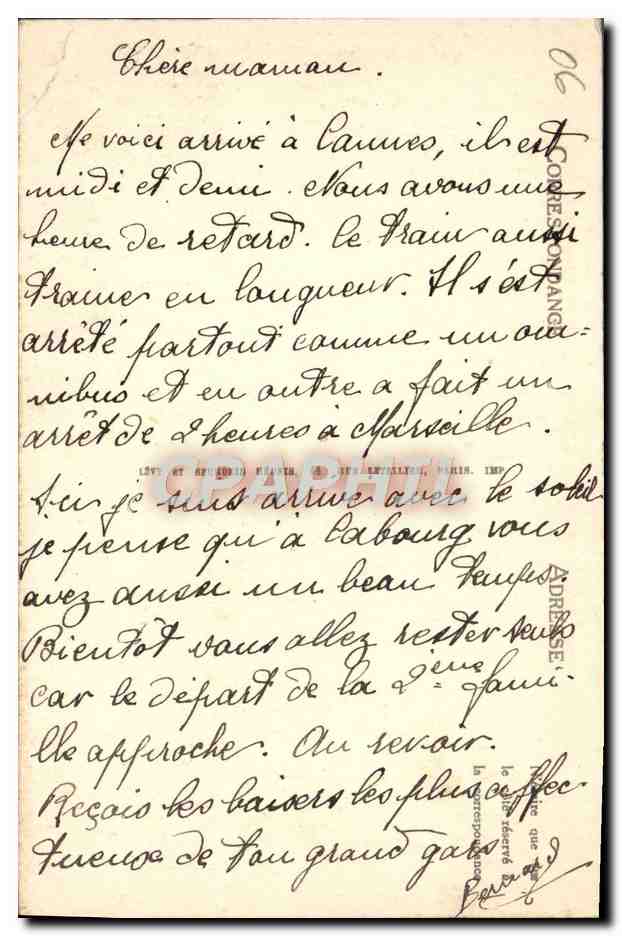 Chère maman.
Me voici arrivé à Cannes, il est
midi et demi. Nous avons une
heure de retard. Le train aussi
traine en longueur. Il s'est
arrêté partout comme un om=
nibus et en outre a fait un
arrêt de 2 heures à Marseille.
Ici je suis arrivé avec le soleil
je pense qu'à Cabourg vous
avez aussi un beau temps.
Bientôt vous allez rester seuls
car le départ de la 2ème fami-
lle approche. Au revoir.
Reçois les baisers les plus affec
tueux de ton grand gars
Bernard
06
CORRESPONDANCE
ADRESSE
LÉVY ET NEURDEIN RÉUNIS, 44, RUE LETELLIER, PARIS. IMP
CPAPHIL
le côté réservé à
la correspondance